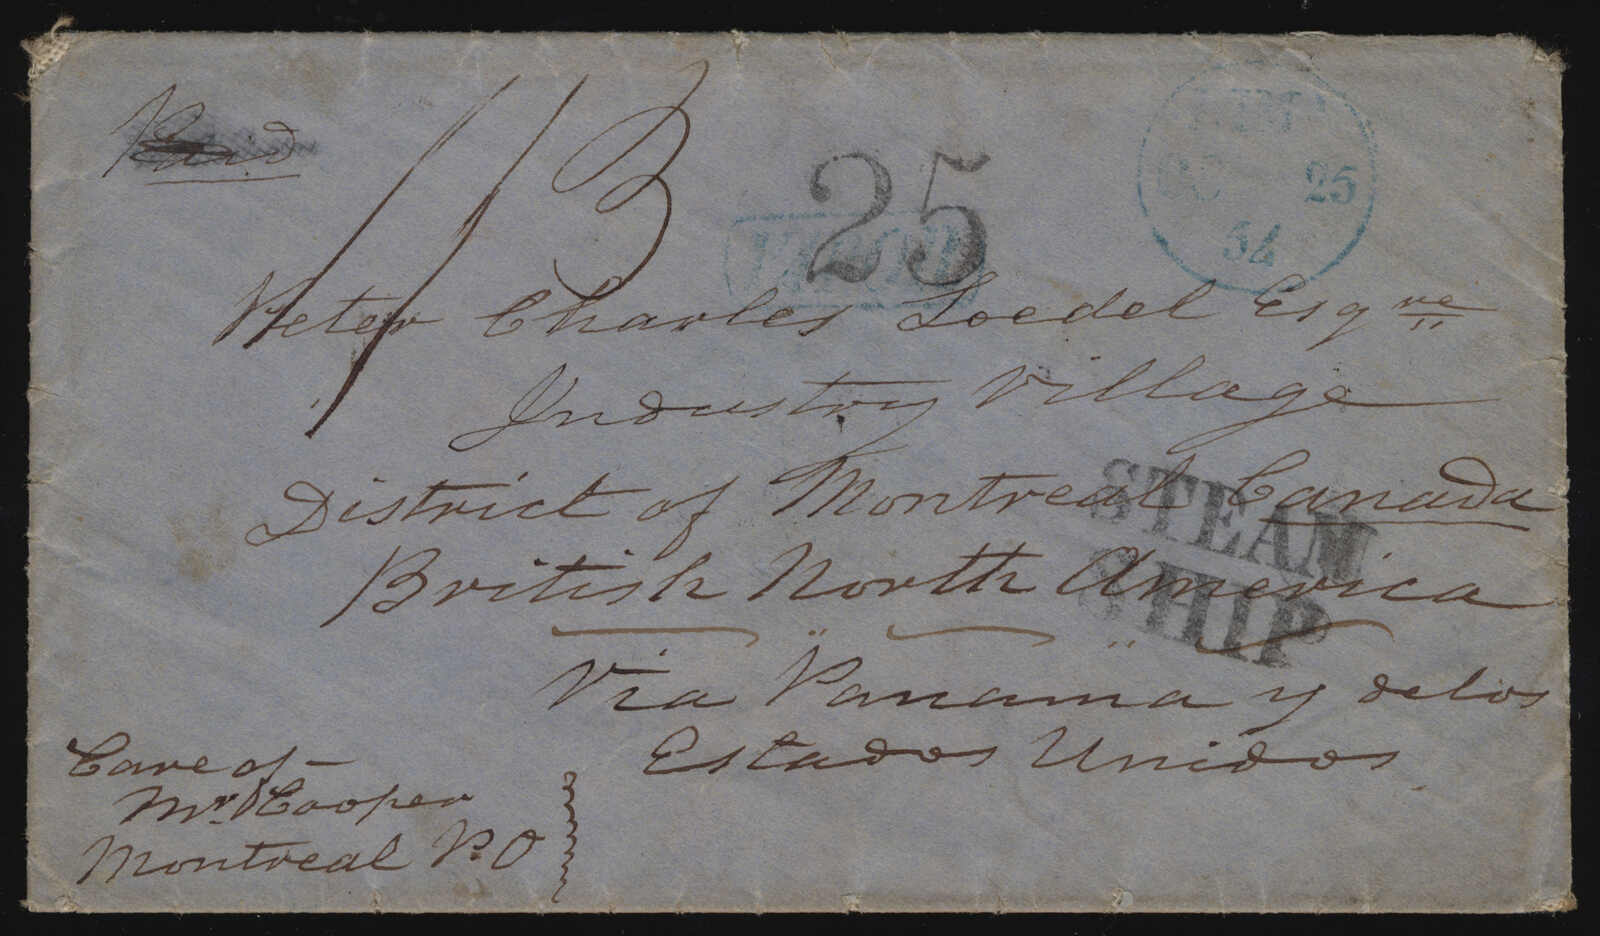 Paid
1/3
25
LIMA
OC 25
54
VAPOR
Peter Charles Loedel Esqre
Industry Village
District of Montreal Canada
British North America
STEAM
SHIP
Via Panama y de los
Estados Unidos
Care of
Mr Cooper
Montreal P.O